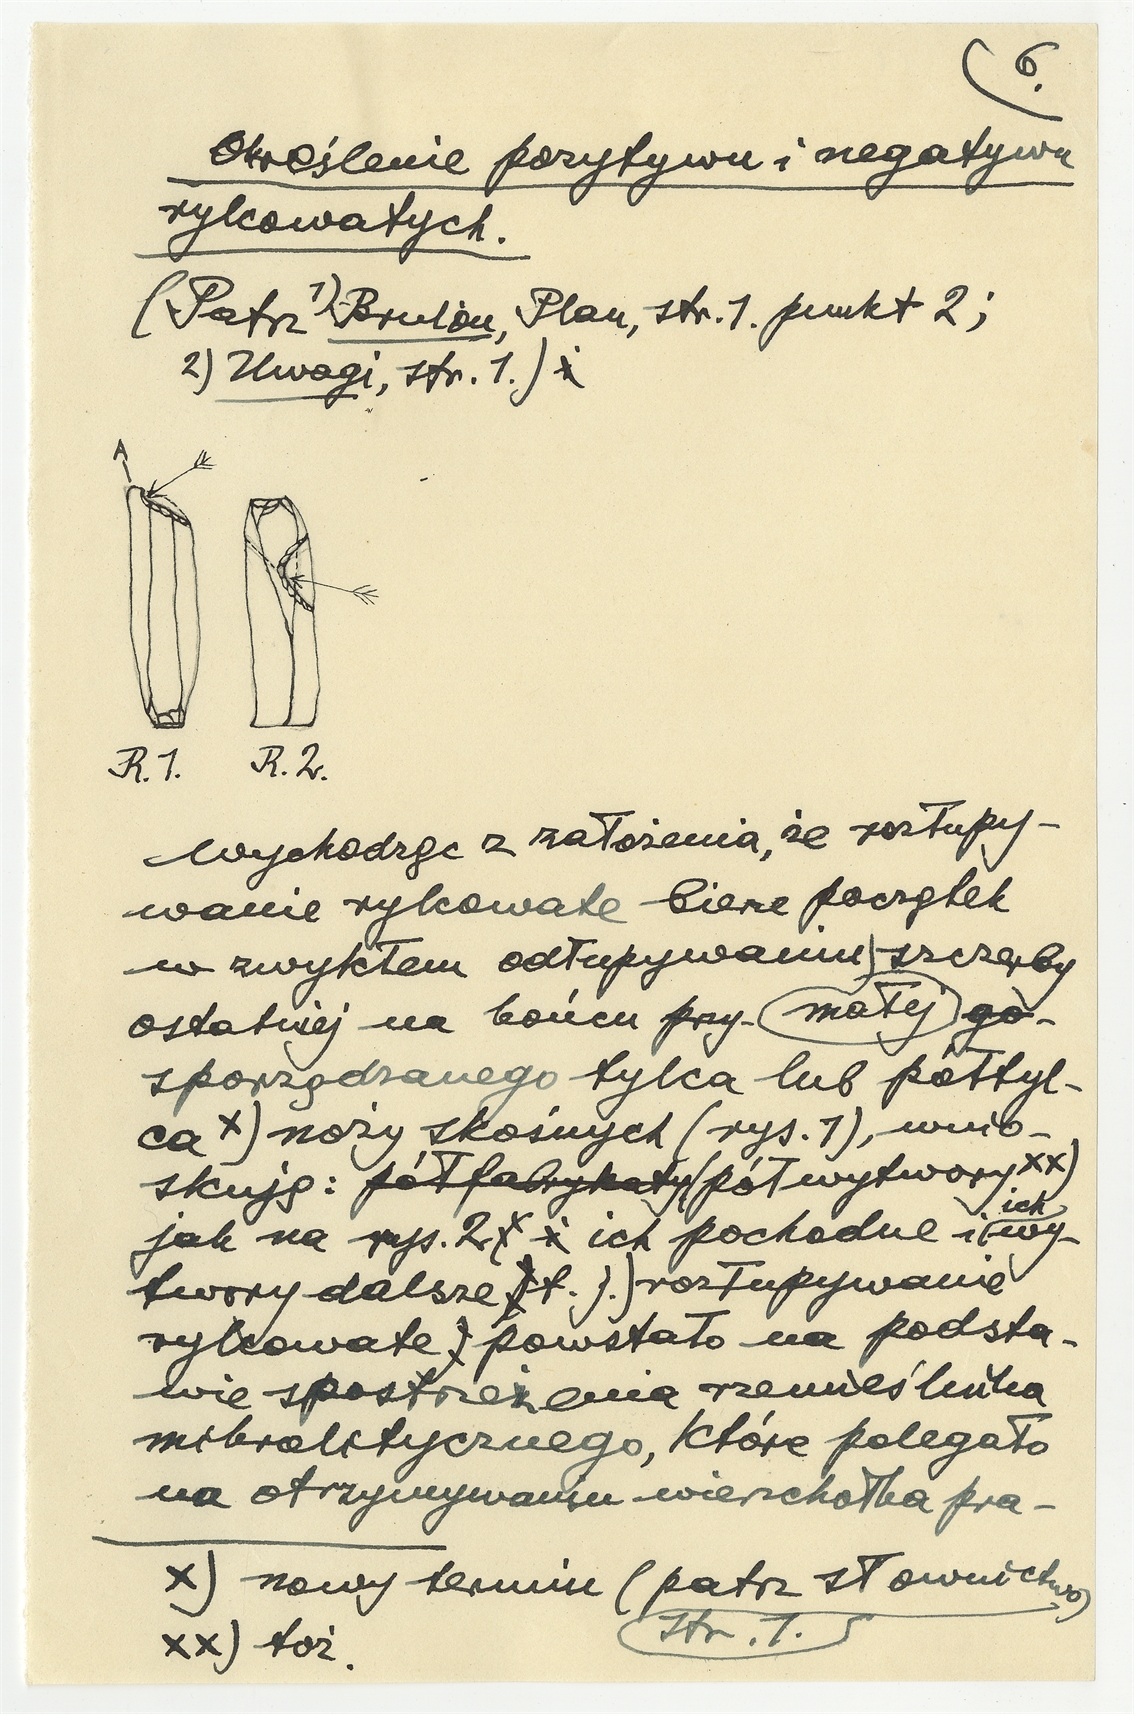 6.
Określenie pozytywu i negatywu
rylcowatych.
(Patrz 1) Brulion, Plan, str. 1. punkt 2;
2) Uwagi, str. 1.) i
A
R. 1. R. 2.
Wychodząc z założenia, że rozłupy-
wanie rylcowate bierze początek
w zwykłem odłupywaniu) szczerby
ostatniej na końcu przy- małej go-
sporządzanego tylca lub półtyl-
ca x) noży skośnych (rys. 1), wnio-
skuję: półfabrykaty (półwytwory xx)
jak na rys. 2 i ich pochodne i ich wy-
twory dalsze, t. j.) rozłupywanie
rylcowate) powstało na podsta-
wie spostrzeżenia rzemieślnika
mikrolitycznego, które polegało
na otrzymywaniu wierzchołka pra-
x) nowy termin (patrz słownictwo)
str. 1.
xx) toż.